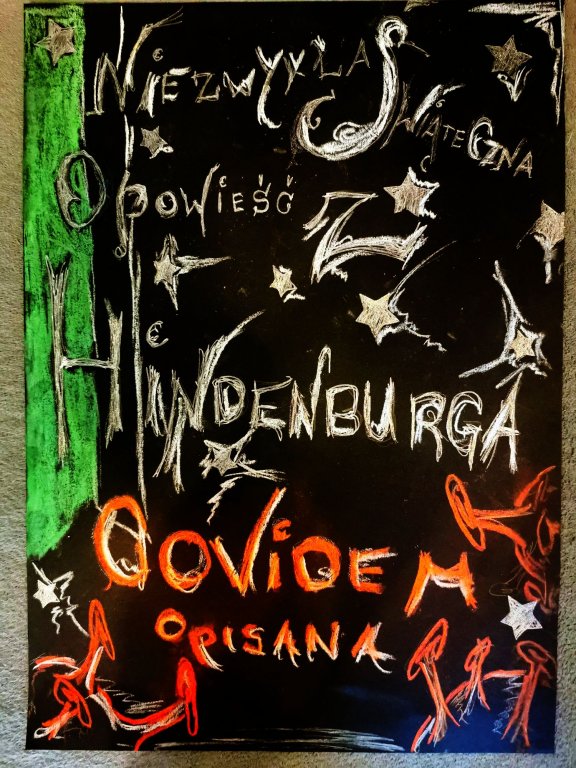 NIEZWYKŁA
ŚWIĄTECZNA
OPOWIEŚĆ
Z
HINDENBURGA
COVIDEM
OPISANA